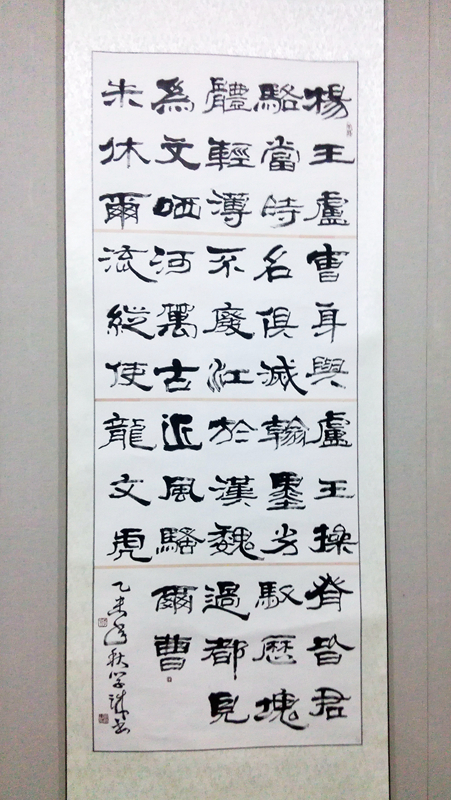 楊王盧
駱當時
體輕薄
為文哂
未休爾
曹身與
名俱滅
不廢江
河萬古
流縱使
盧王操
翰墨劣
於漢魏
近風騷
龍文虎
脊皆君
馭歷塊
過都見
爾曹
乙未年秋